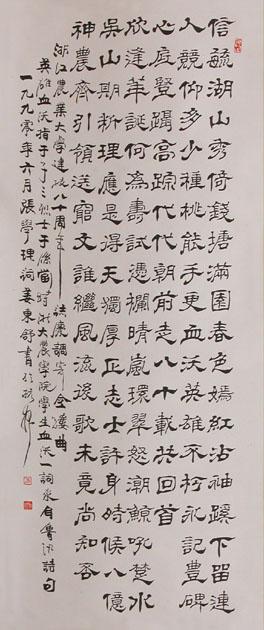 信毓湖山秀倚錢塘滿園春色嫣紅沾袖蹊下留連
人競仰多少種桃能手更血沃英雄不朽永記豐碑
心底登躡高踪代代朝前走八十載共回首
欣逢華誕何為壽試憑欄晴嵐環翠怒潮鯨吼楚水
吳山期析理應是得天獨厚正志士許身時候八億
神農齊引領送窮文誰繼風流後歌未竟尚知否
浙江農業大學建校八十周年誌慶調寄金縷曲
英雄血沃指于子三烈士于係當時浙大農學院學生血沃一詞來自魯迅詩句
一九九零年六月張學理詞姜東舒書於杭州